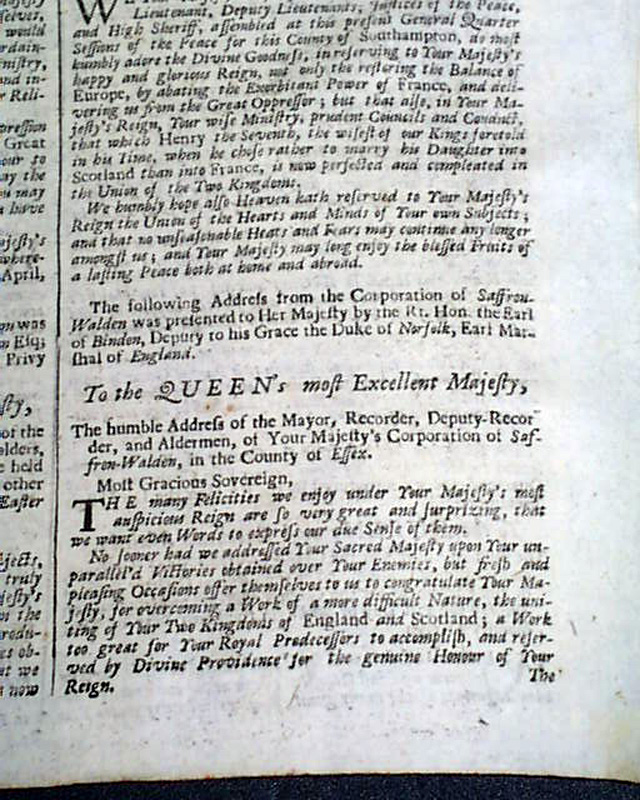 selves,
would
rdain-
nistry,
and in-
r Reli-
pression
Great
our to
ay the
ou may
s have
ajesty's
where-
April,
on was
n Esq;
Privy
sty,
of the
olders,
e held
other
Easter
bjects,
truly
jesty's
in the
redu-
es ob-
at we
s now
Lieutenant, Deputy Lieutenants, Justices of the Peace,
and High Sheriff, assembled at this present General Quarter
Sessions of the Peace for this County of Southampton, do most
humbly adore the Divine Goodness, in reserving to Your Majesty's
happy and glorious Reign, not only the restoring the Balance of
Europe, by abating the Exorbitant Power of France, and deli-
vering us from the Great Oppressor; but that also, in Your Ma-
jesty's Reign, Your wise Ministry, prudent Councils and Conduct,
that which Henry the Seventh, the wisest of our Kings foretold
in his Time, when he chose rather to marry his Daughter into
Scotland than into France, is now perfected and compleated in
the Union of the Two Kingdoms.
We humbly hope also Heaven hath reserved to Your Majesty's
Reign the Union of the Hearts and Minds of Your own Subjects;
and that no unseasonable Heats and Fears may continue any longer
amongst us; and Your Majesty may long enjoy the blessed Fruits of
a lasting Peace both at home and abroad.
The following Address from the Corporation of Saffron-
Walden was presented to Her Majesty by the Rt. Hon. the Earl
of Bindon, Deputy to his Grace the Duke of Norfolk, Earl Mar-
shal of England.
To the QUEEN's most Excellent Majesty,
The humble Address of the Mayor, Recorder, Deputy-Recor-
der, and Aldermen, of Your Majesty's Corporation of Saf-
fron-Walden, in the County of Essex.
Most Gracious Sovereign,
THE many Felicities we enjoy under Your Majesty's most
auspicious Reign are so very great and surprizing, that
we want even Words to express our due Sense of them.
No sooner had we addressed Your Sacred Majesty upon Your un-
parallel'd Victories obtained over Your Enemies, but fresh and
pleasing Occasions offer themselves to us to congratulate Your Ma-
jesty, for overcoming a Work of a more difficult Nature, the uni-
ting of Your Two Kingdoms of England and Scotland; a Work
too great for Your Royal Predecessors to accomplish, and reser-
ved by Divine Providence for the genuine Honour of Your
Reign.
The